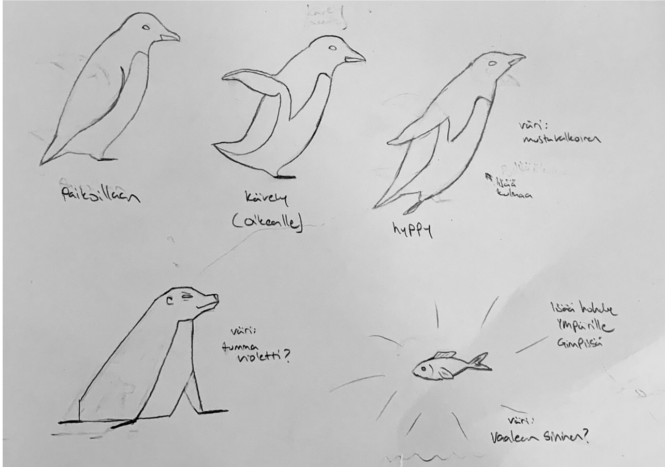 Paikoillaan
Kävely
(oikealle)
hyppy
väri:
mustavalkoinen
lisää
kulmaa
väri:
tumma
violetti?
lisää hohde
ympärille
Gimpissä
väri:
vaalean sininen?